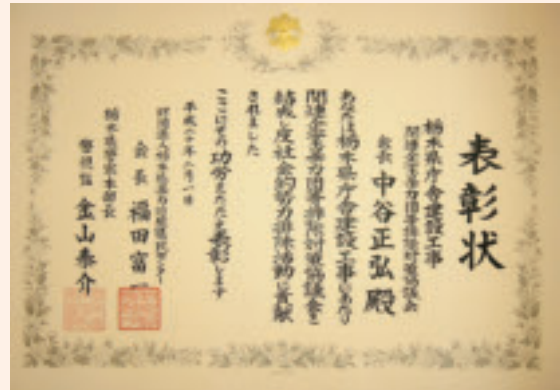 表彰状
栃木県庁舎建設工事
関連企業暴力団等排除対策協議会
会長 中谷正弘 殿
あなたは栃木県庁舎建設工事にあたり
関連企業暴力団等排除対策協議会を
結成し反社会的勢力排除活動に貢献
されました
ここにその功労をたたえ表彰します
平成二十年二月一日
会長 福田富一
栃木県警察本部長
警視監 金山泰介